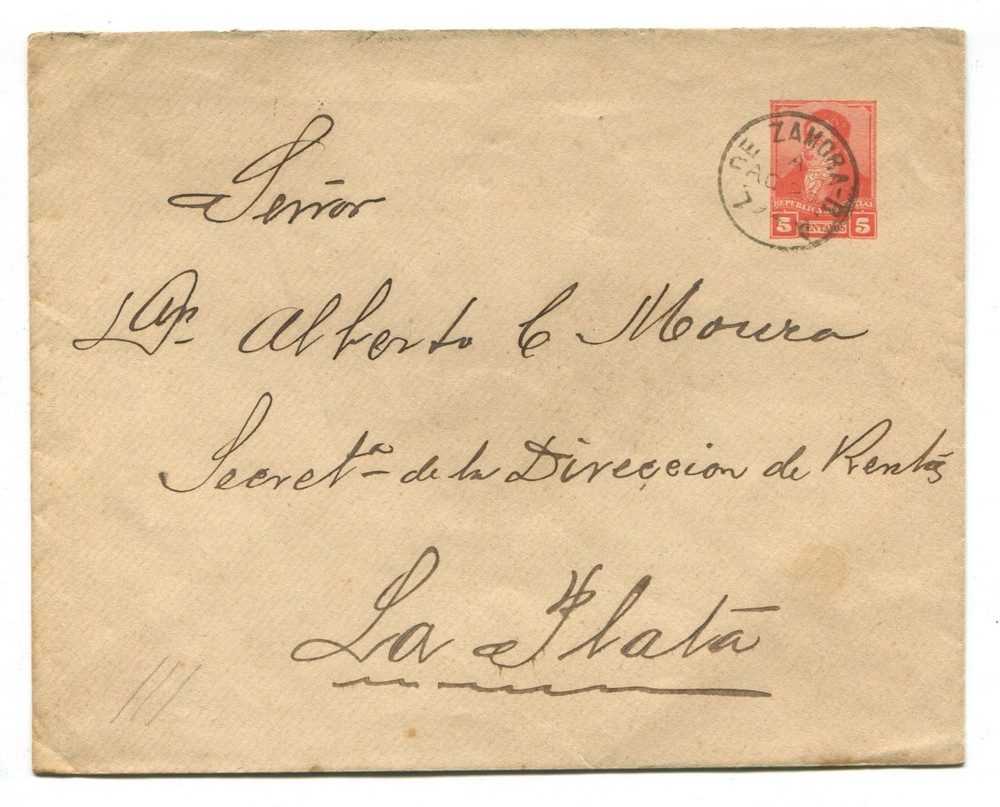 L. DE ZAMORA-R
A
AG
REPUBLICA
5 CENTAVOS 5
Señor
Alberto C. Moura
Secretª de la Direccion de Rentas
La Plata